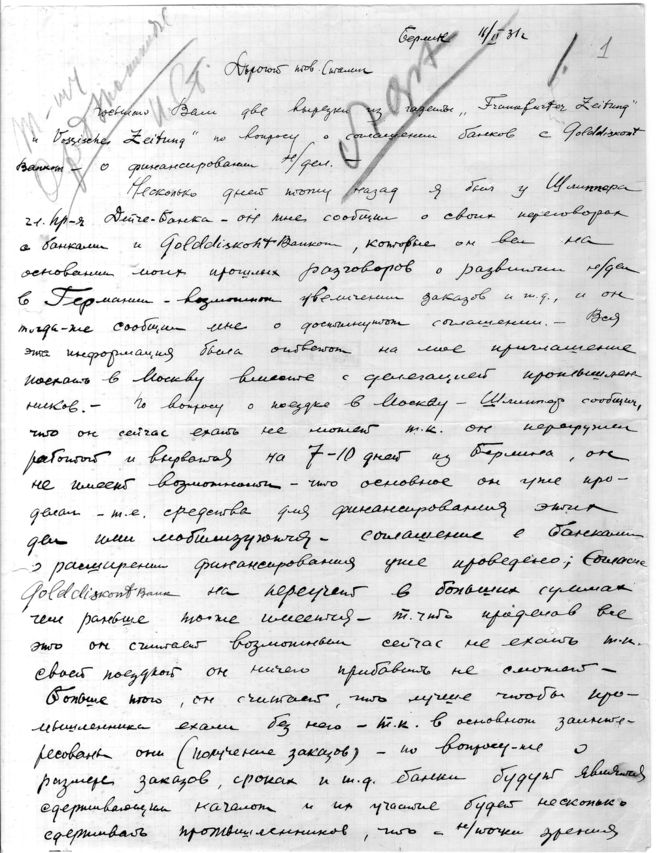 Берлин 16/II 31 г
1
Дорогой тов. Сталин
Посылаю Вам две вырезки из газеты „Frankfurter Zeitung"
и Vossische Zeitung" по вопросу о соглашении банков с Golddiskont
Банком – о финансировании н/дел. –
Несколько дней тому назад я был у Шлиппера
гл. Дейче-Банка – он мне сообщил о своих переговорах
с банками и Golddiskont Банком, которые он вел на
основании моих прошлых разговоров о развитии н/дел
в Германии – возможном увеличении заказов и т.д., и он
тогда-же сообщил мне о достигнутом соглашении. – Вся
эта информация была ответом на мое приглашение
поехать в Москву вместе с делегацией промышлен
ников. – По вопросу о поездке в Москву – Шлиппер сообщил,
что он сейчас ехать не может т.к. он перегружен
работой и вырваться на 7–10 дней из Берлина, он
не имеет возможности – что основное он уже про-
делал – т.е. средства для финансирования этих
дел ими мобилизуются – соглашение с банками
о расширении финансирования уже проведено; Согласие
Golddiskont Банк на переучет в больших суммах
чем раньше тоже имеется – т.что проделав все
это он считает возможным сейчас не ехать т.к.
своей поездкой он ничего прибавить не сможет –
Больше того, он считает, что лучше чтобы про-
мышленники ехали без него – т.к. в основном заинте-
ресованы они (получение заказов) – по вопросу-же о
размере заказов, сроках и т.д. банки будут являться
сдерживающим началом и их участие будет несколько
сдерживать промышленников, что – н/точки зрения